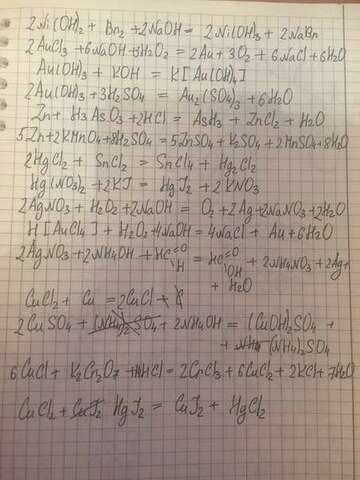 2Ni(OH)₂ + Br₂ + 2NaOH = 2Ni(OH)₃ + 2NaBr
2AuCl₃ + 6NaOH + 3H₂O₂ = 2Au + 3O₂ + 6NaCl + 6H₂O
Au(OH)₃ + KOH = K[Au(OH)₄]
2Au(OH)₃ + 3H₂SO₄ = Au₂(SO₄)₃ + 6H₂O
Zn + H₃AsO₄ + 2HCl = AsH₃ + ZnCl₂ + H₂O
5Zn + 2KMnO₄ + 8H₂SO₄ = 5ZnSO₄ + K₂SO₄ + 2MnSO₄ + 8H₂O
2HgCl₂ + SnCl₂ = SnCl₄ + Hg₂Cl₂
Hg(NO₃)₂ + 2KJ = HgJ₂ + 2KNO₃
2AgNO₃ + H₂O₂ + 2NaOH = O₂ + 2Ag + 2NaNO₃ + 2H₂O
H[AuCl₄] + H₂O₂ + 4NaOH = 4NaCl + Au + 6H₂O
2AgNO₃ + 2NH₄OH + HC=O H = HC=O OH + 2NH₄NO₃ + 2Ag +
+ H₂O
CuCl₂ + Cu = 2CuCl
2CuSO₄ + (NH₄)₂SO₄ + 2NH₄OH = (CuOH)₂SO₄ +
+ NH₄ (NH₄)₂SO₄
6CuCl + K₂Cr₂O₇ + 14HCl = 2CrCl₃ + 6CuCl₂ + 2KCl + 7H₂O
CuCl₂ + CuJ₂ HgJ₂ = CuJ₂ + HgCl₂